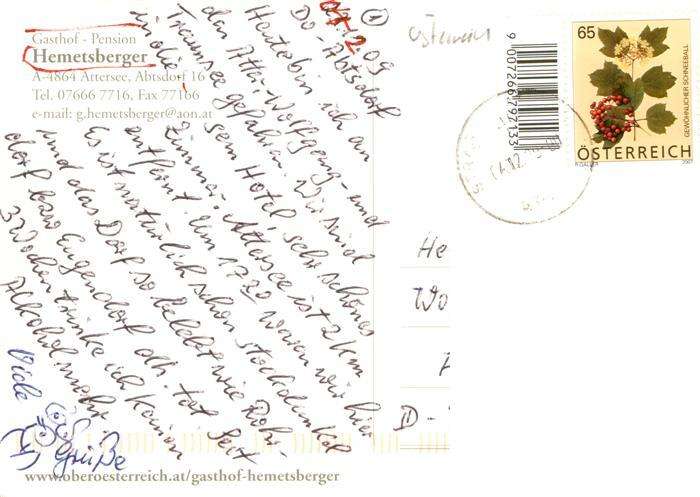 Gasthof - Pension
Hemetsberger
A-4864 Attersee, Abtsdorf 16
Tel. 07666 7716, Fax 77166
e-mail: g.hemetsberger@aon.at
①
07.12.09
Do - Abtsdorf
Heute bin ich an
den Atter- Wolfgang- und
Traunsee gefahren. Wir sind
in die
sem Hotel, sehr schönes
Zimmer. Attersee ist 2 km
entfernt. Um 17²⁰ waren wir hier
Es ist natürlich schon stockdunkel
und das Dorf so belebt wie
dorf bzw Eugendorf
3 Wochen trinke ich keinen
Alkohol mehr.
Viele
Grüße
www.oberoesterreich.at/gasthof-hemetsberger
9007266797133
65
GEWÖHNLICHER SCHNEEBALL
ÖSTERREICH
2007
He
Wo
D -